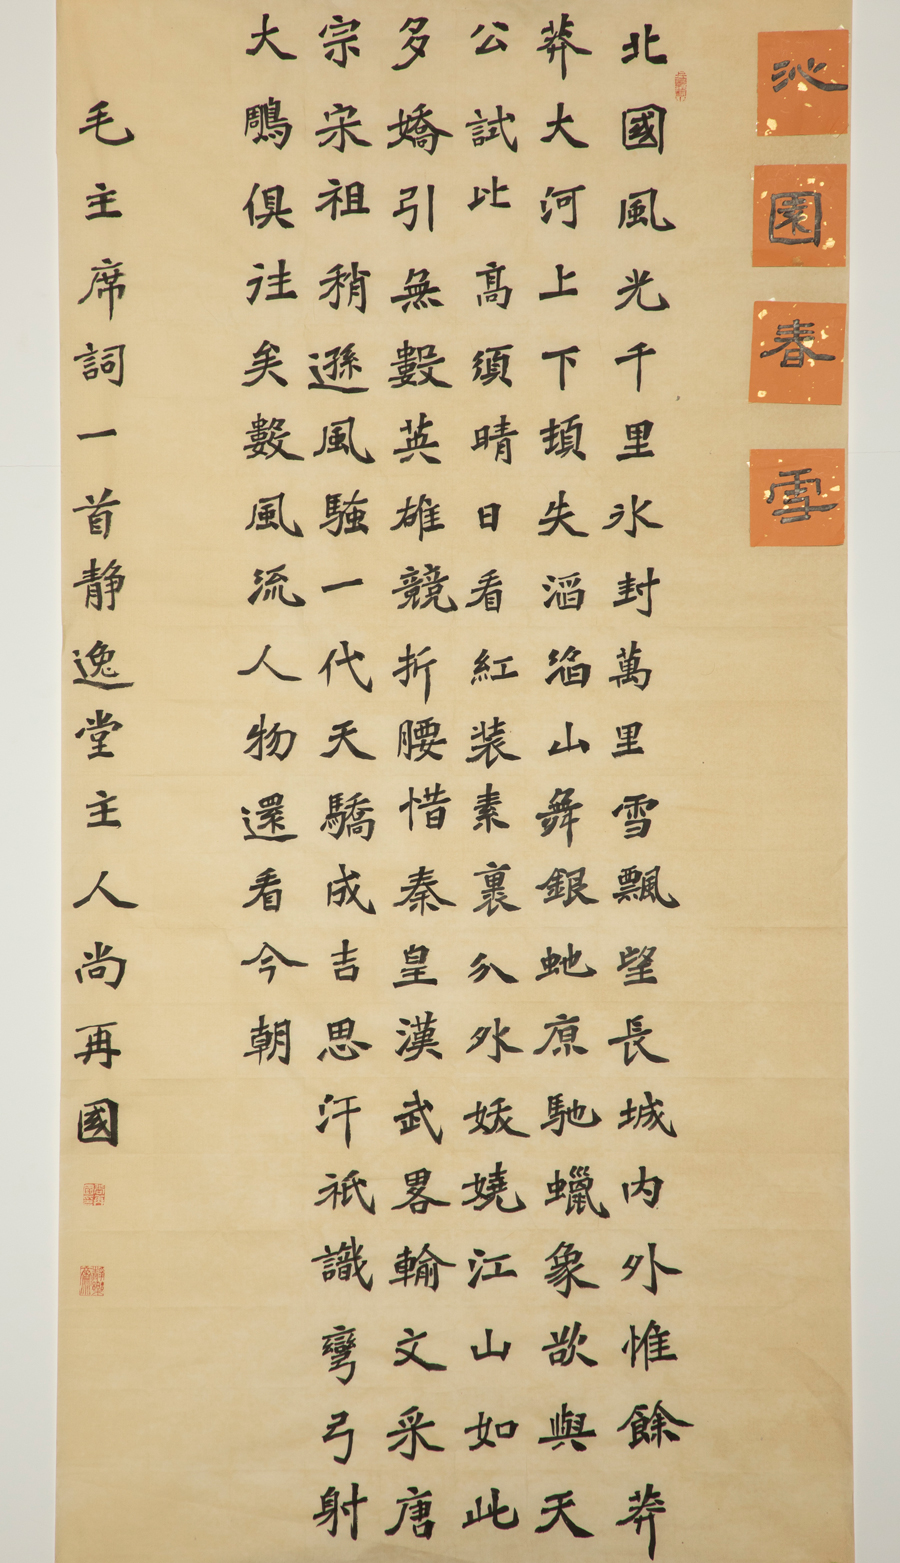 沁園春雪
北國風光千里氷封萬里雪飄望長城内外惟餘莽
莽大河上下頓失滔滔山舞銀蛇原馳蠟象欲與天
公試比高須晴日看紅装素裹分外妖嬈江山如此
多嬌引無數英雄競折腰惜秦皇漢武畧輸文采唐
宗宋祖稍遜風騷一代天驕成吉思汗祇識彎弓射
大鵰俱往矣數風流人物還看今朝
毛主席詞一首静逸堂主人尚再國